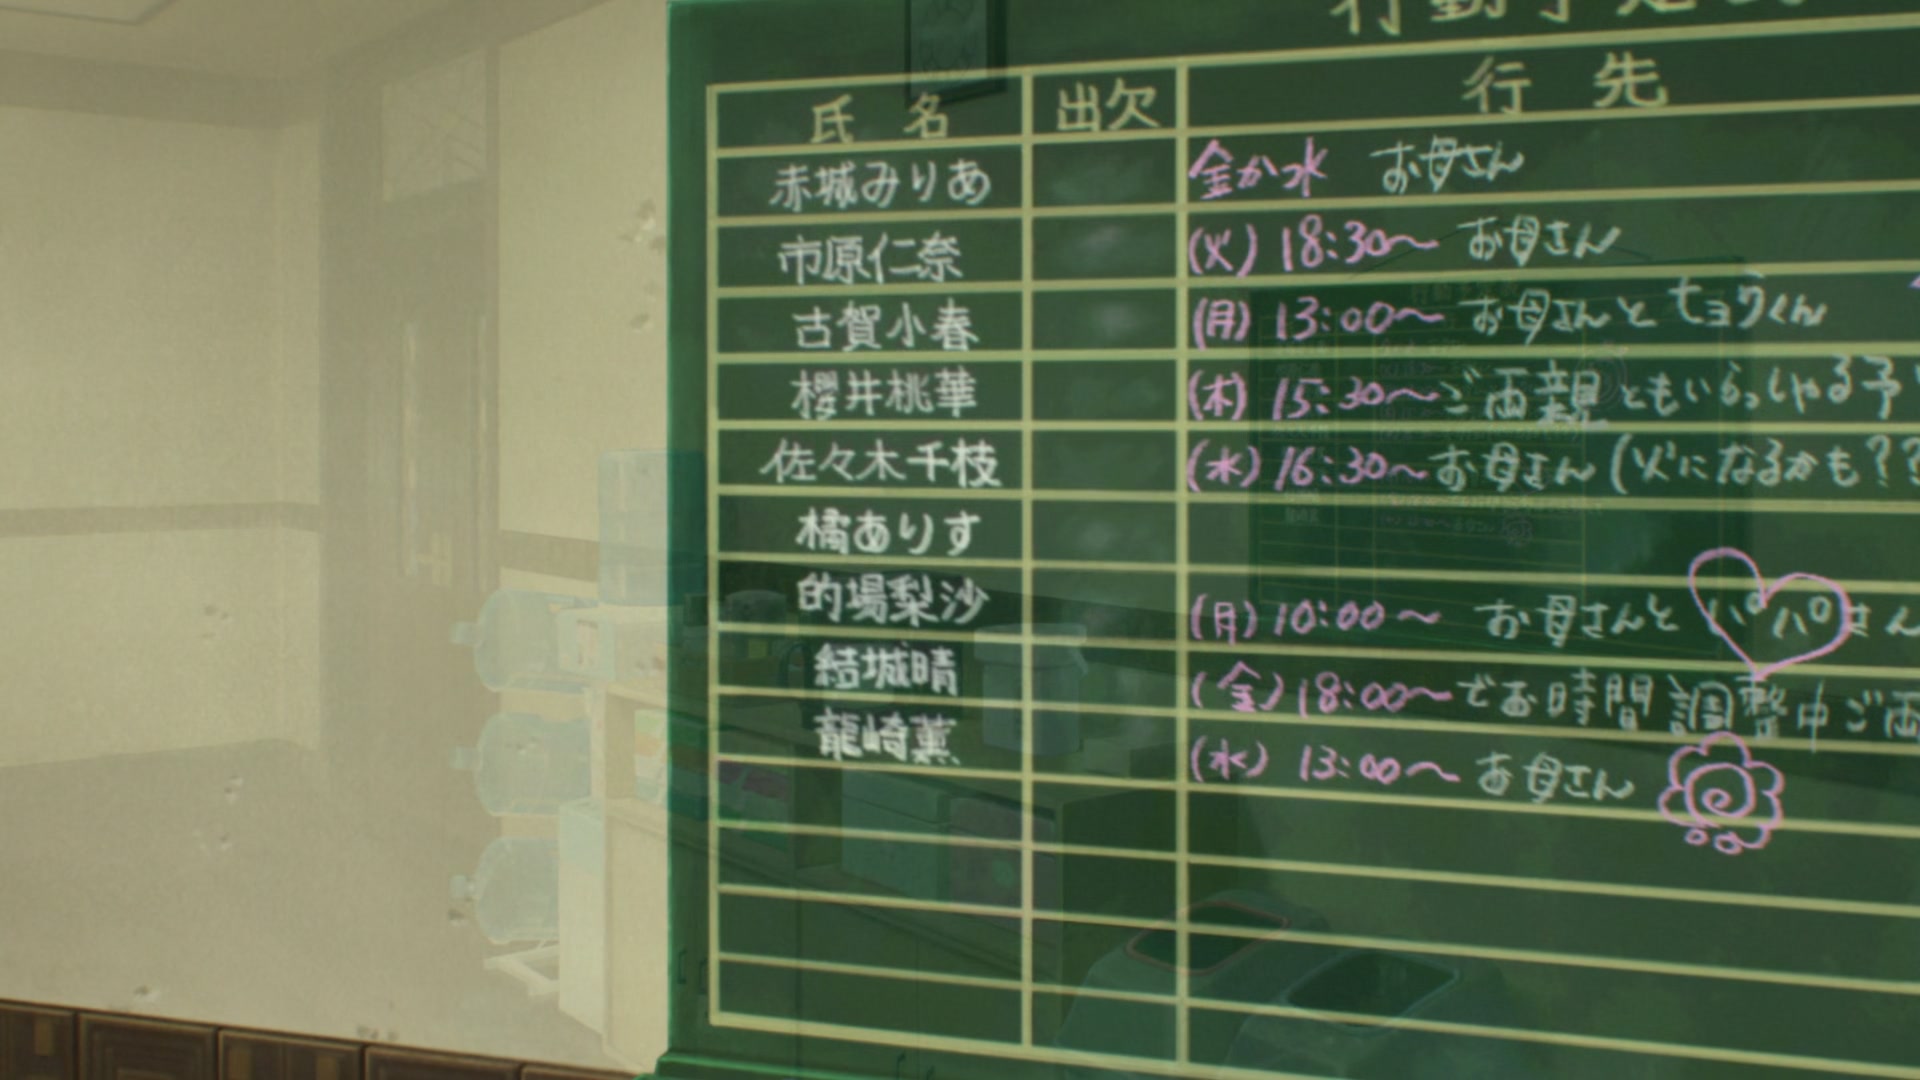 行動予定表
氏 名 出欠 行 先
赤城みりあ 金か水 お母さん
市原仁奈 (火) 18:30〜 お母さん
古賀小春 (月) 13:00〜 お母さんと ヒョウくん
櫻井桃華 (木) 15:30〜ご両親ともいらっしゃる予
佐々木千枝 (水) 16:30〜お母さん (火になるかも??
橘ありす
的場梨沙 (月) 10:00〜 お母さんと パパさん
結城晴 (金) 18:00〜でお時間調整中ご両
龍崎薫 (水) 13:00〜 お母さん